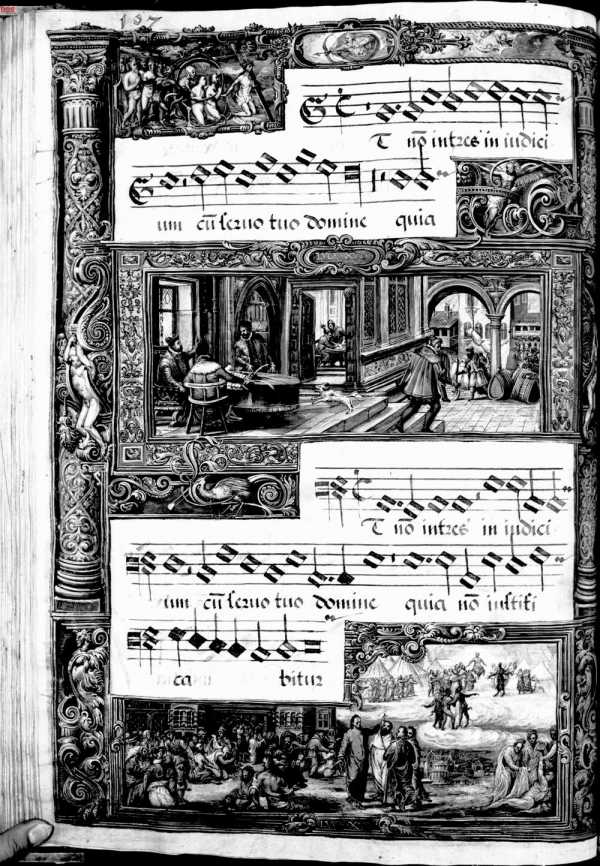 187
T nō intres in iudici
um cū seruo tuo domine quia
T nō intres in iudici
um cū seruo tuo domine quia nō iustifi
ca bitur